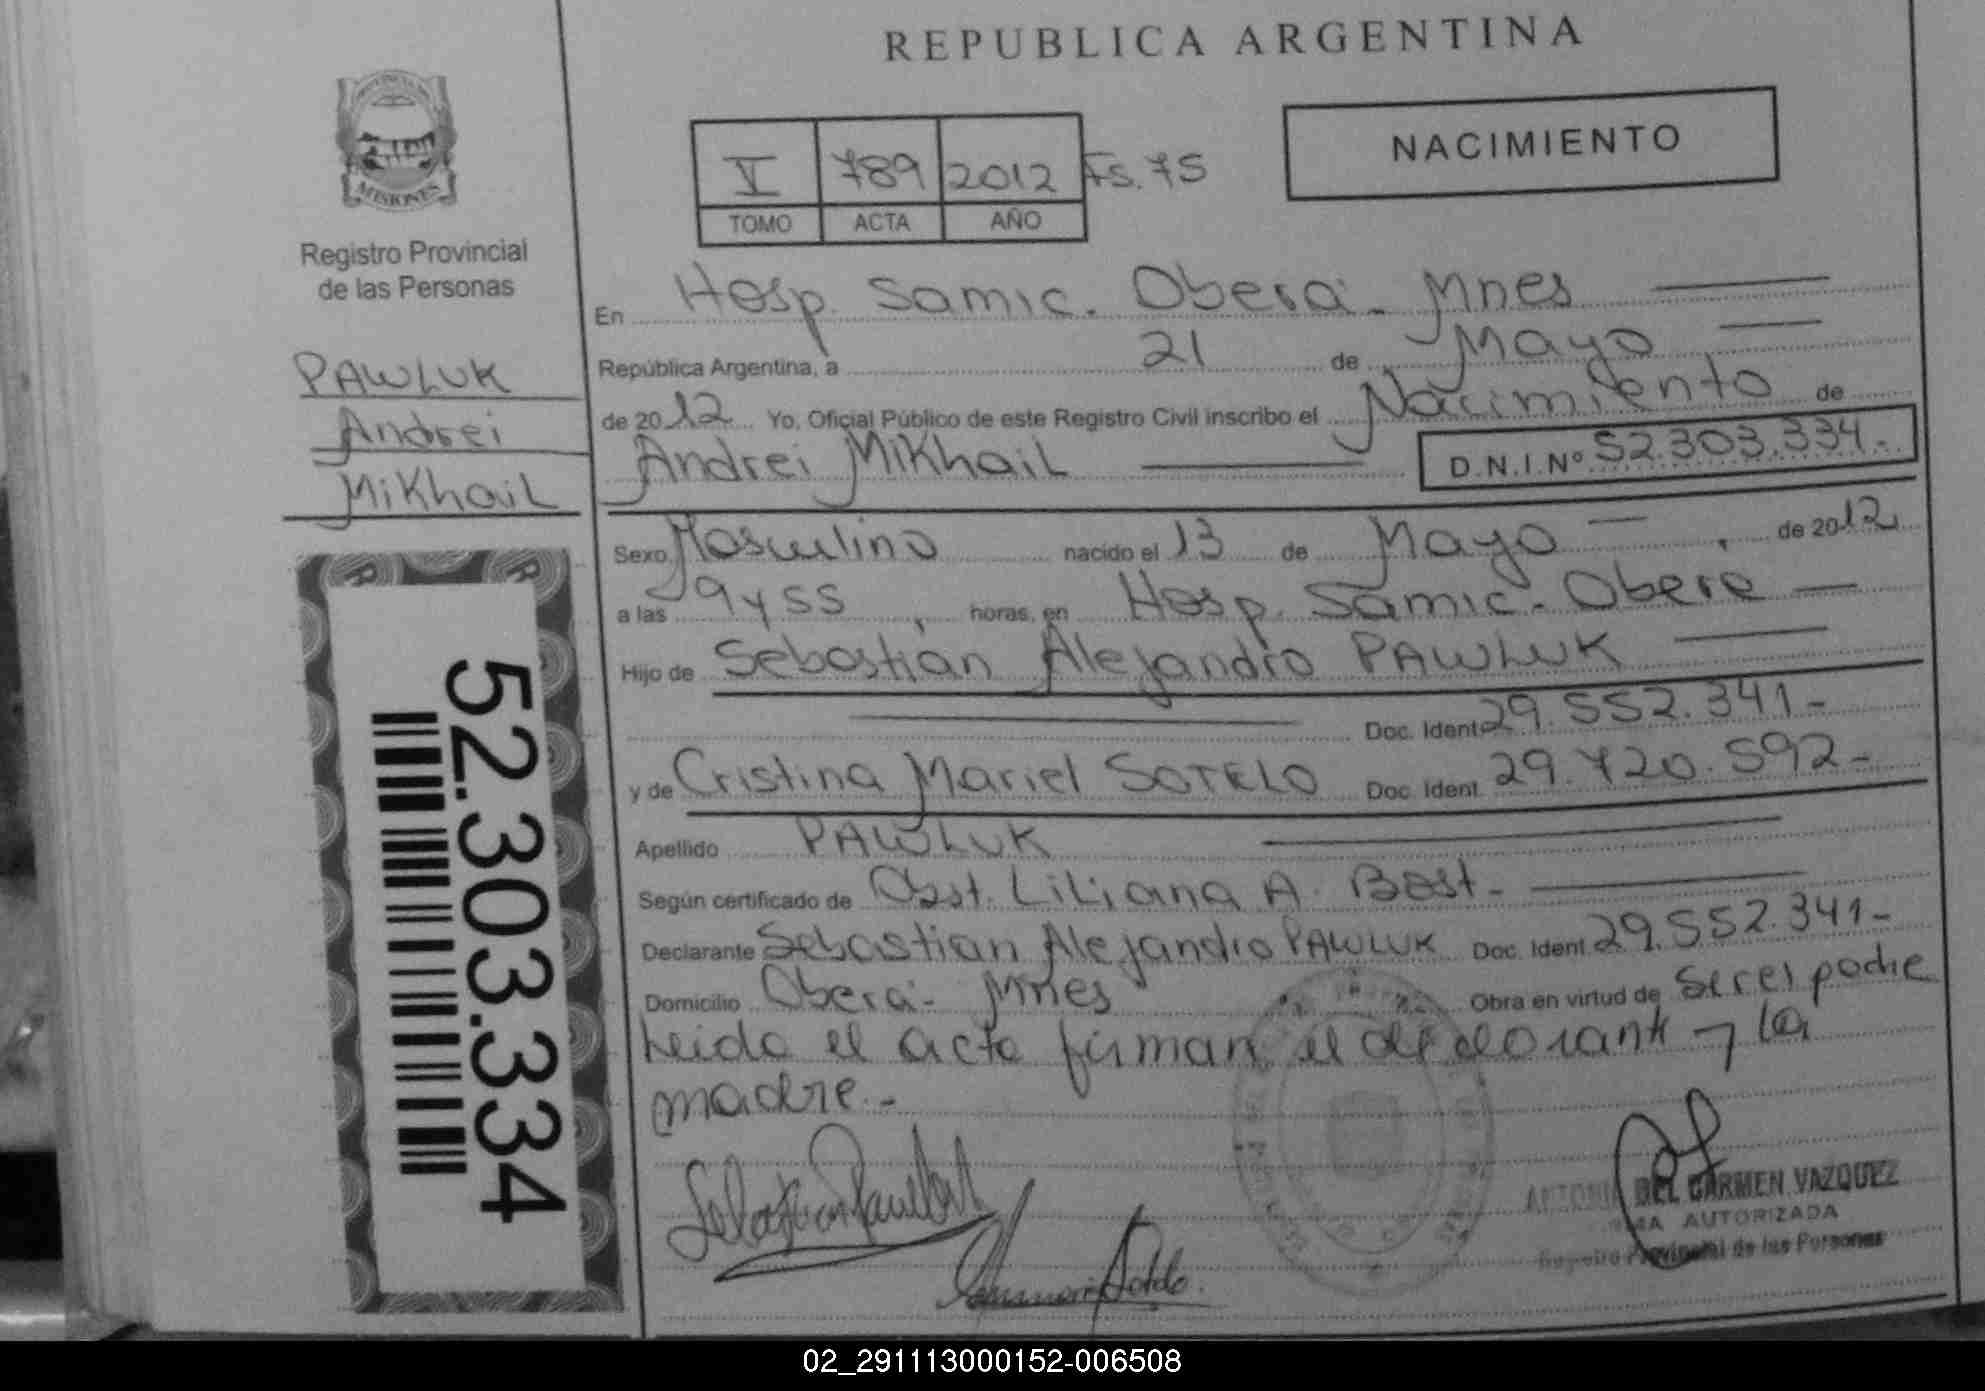 REPUBLICA ARGENTINA
PROVINCIA DE
MISIONES
Registro Provincial
de las Personas
V 789 2012 Fs. 75
TOMO ACTA AÑO
NACIMIENTO
PAWLUK
Andrei
Mikhail
52.303.334
En Hosp. Samic. Oberá - Mnes
República Argentina, a 21 de Mayo
de 2012 Yo, Oficial Público de este Registro Civil inscribo el Nacimiento de
Andrei Mikhail D.N.I.Nº 52.303.334.-
Sexo Masculino nacido el 13 de Mayo , de 2012
a las 9 y 55 , horas, en Hosp. Samic. Obera
Hijo de Sebastián Alejandro PAWLUK
Doc. Ident 29.552.341-
y de Cristina Mariel SOTELO Doc. Ident. 29.720.592-
Apellido PAWLUK
Según certificado de Obst. Liliana A. Bast-
Declarante Sebastian Alejandro PAWLUK Doc. Ident. 29.552.341-
Domicilio Oberá- Mnes Obra en virtud de ser el padre
Leido el acta firman el declarante y la
madre.-
DEL CARMEN VAZQUEZ
AUTORIZADA
Registro Provincial de las Personas
02_291113000152-006508